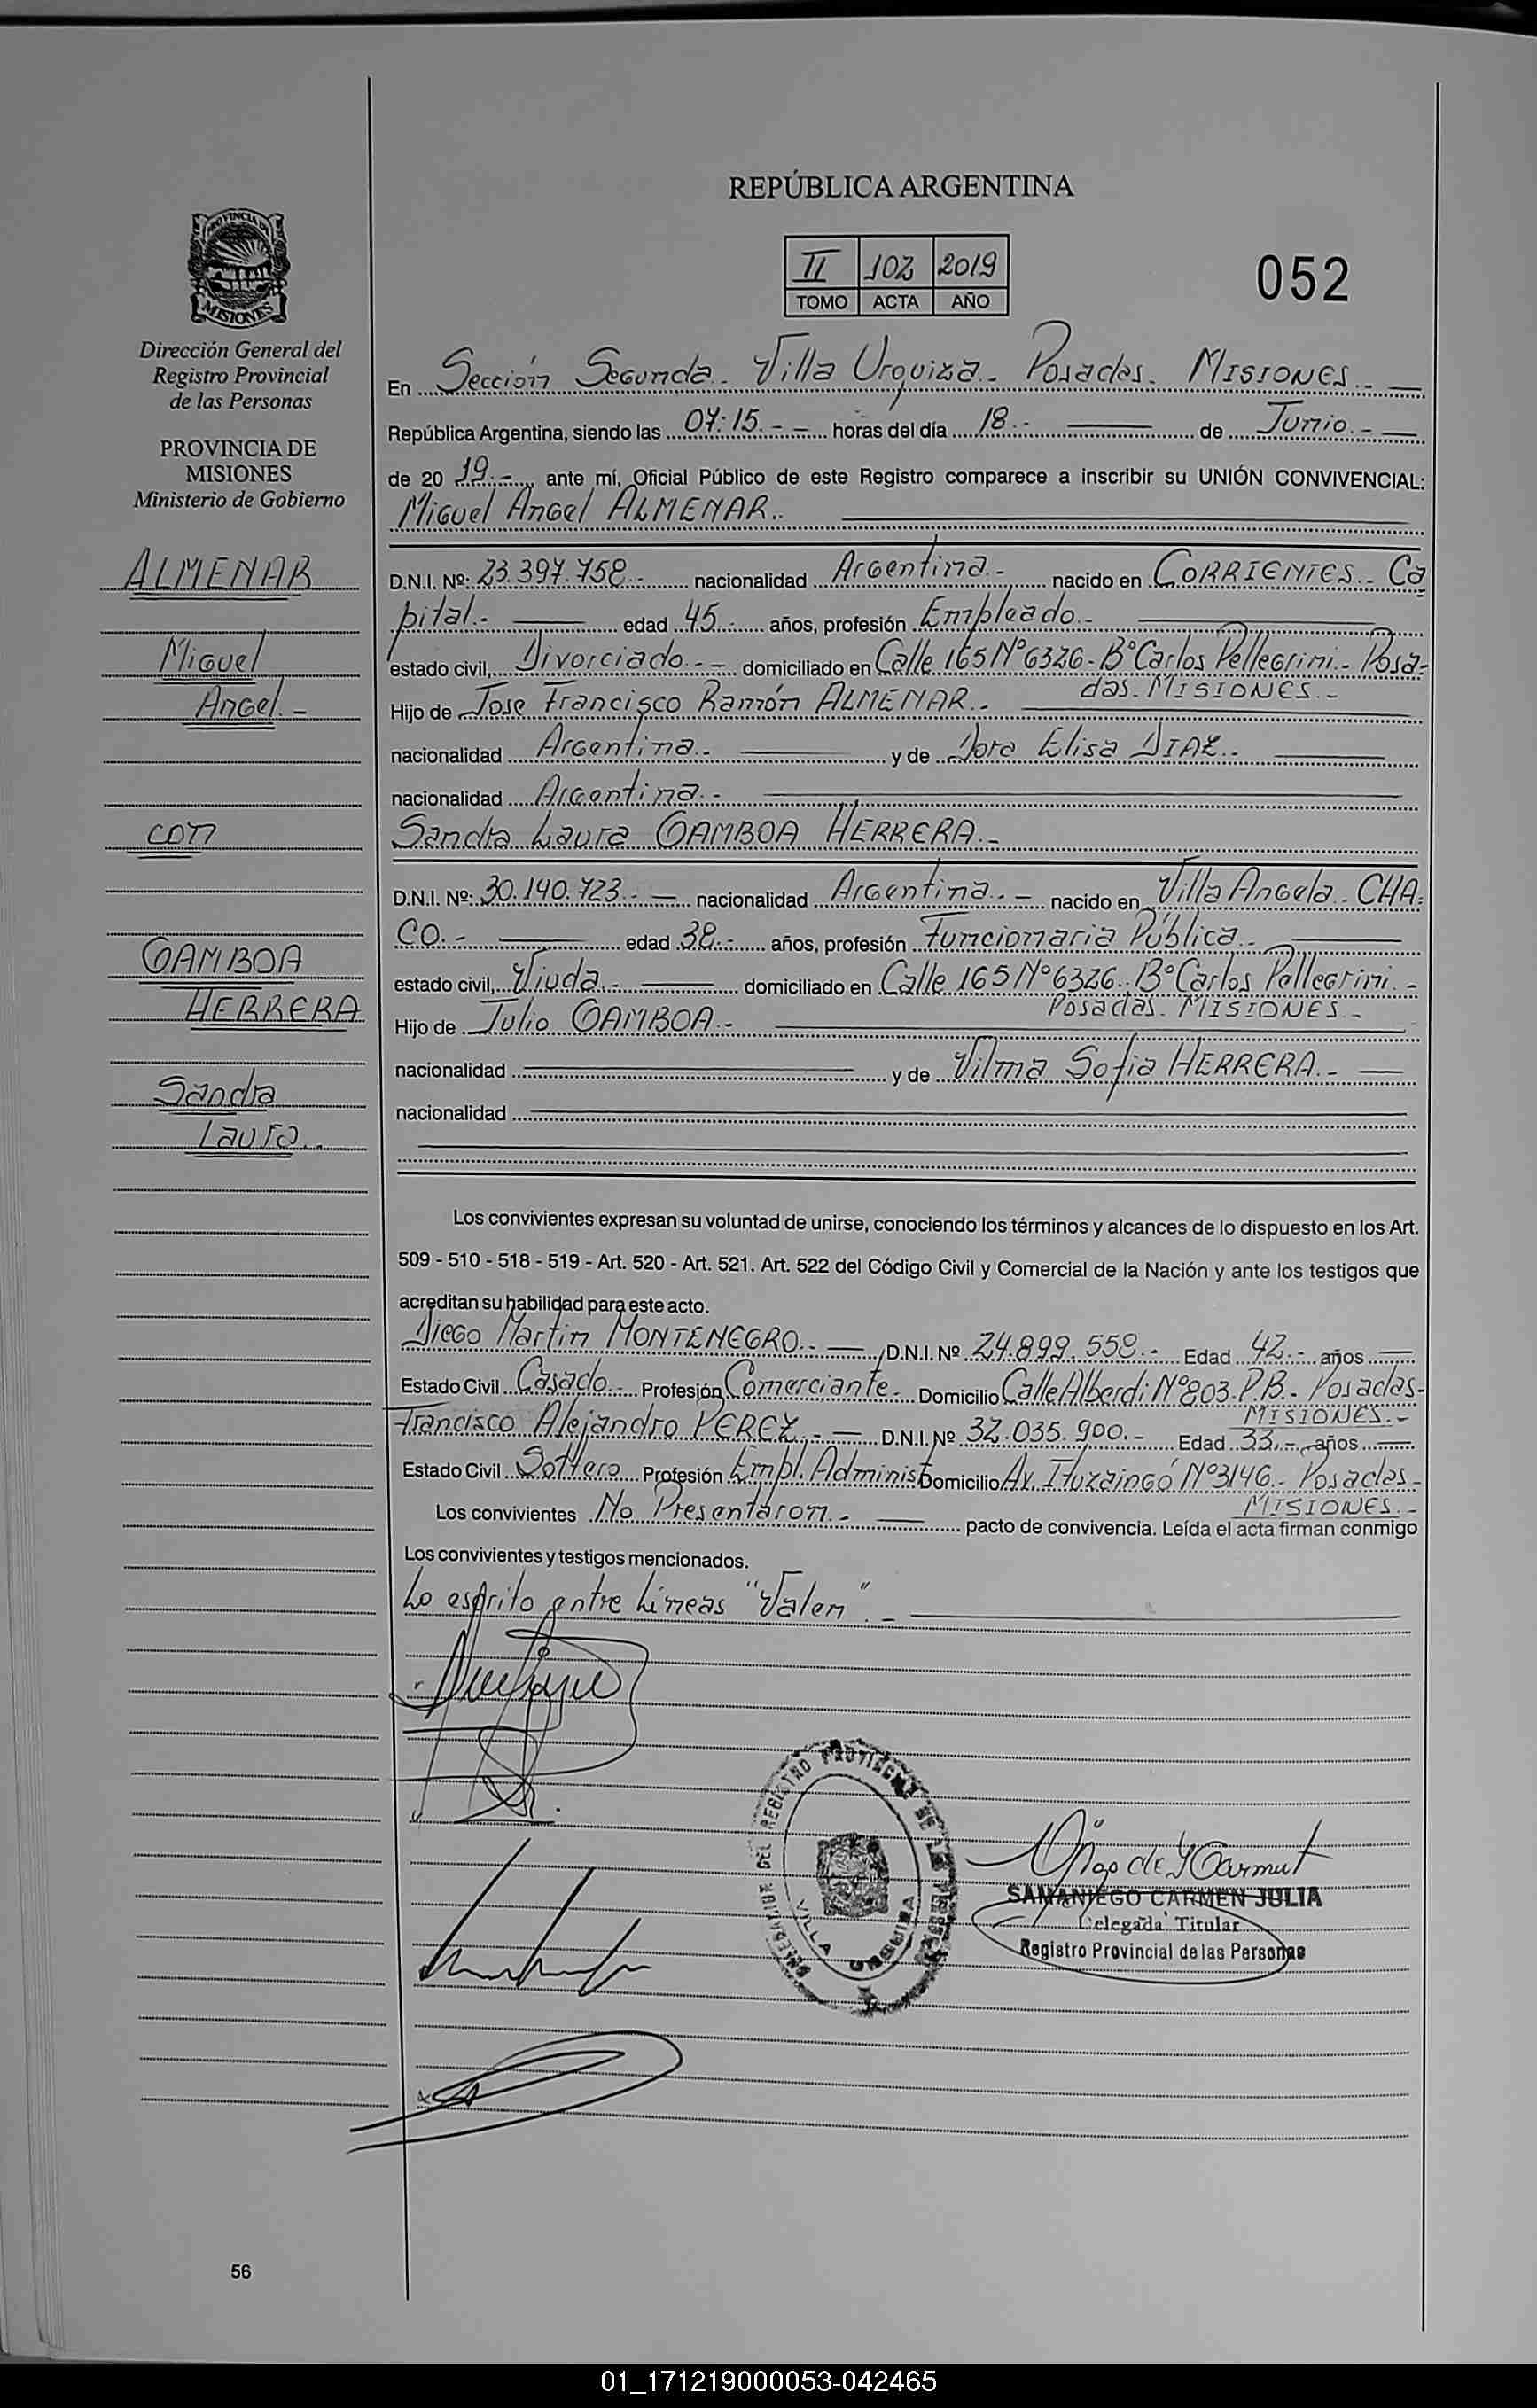 REPÚBLICA ARGENTINA
II 102 2019
TOMO ACTA AÑO
052
PROVINCIA DE
MISIONES
Dirección General del
Registro Provincial
de las Personas
PROVINCIA DE
MISIONES
Ministerio de Gobierno
ALMENAR
Miguel
Angel.-
con
GAMBOA
HERRERA
Sandra
Laura.-
En Sección Segunda. Villa Urquiza. Posadas. MISIONES.-
República Argentina, siendo las 07:15.-- horas del día 18.- de Junio.-
de 20 19.- ante mí, Oficial Público de este Registro comparece a inscribir su UNIÓN CONVIVENCIAL:
Miguel Angel ALMENAR.
D.N.I. Nº: 23.397.758.- nacionalidad Argentina.- nacido en CORRIENTES.- Ca
pital.- edad 45 años, profesión Empleado.-
estado civil, Divorciado.-- domiciliado en Calle 165 Nº 6326- Bº Carlos Pellegrini.- Posa-
das. MISIONES.-
Hijo de Jose Francisco Ramón ALMENAR.-
nacionalidad Argentina.- y de Dora Elisa DIAZ.-
nacionalidad Argentina.-
Sandra Laura GAMBOA HERRERA.-
D.N.I. Nº: 30.140.723.- nacionalidad Argentina.- nacido en Villa Angela. CHA-
CO.- edad 38.- años, profesión Funcionaria Pública.-
estado civil, Viuda.- domiciliado en Calle 165 Nº 6326.- Bº Carlos Pellegrini.-
Posadas. MISIONES.-
Hijo de Julio GAMBOA.-
nacionalidad y de Vilma Sofia HERRERA.-
nacionalidad
Los convivientes expresan su voluntad de unirse, conociendo los términos y alcances de lo dispuesto en los Art.
509 - 510 - 518 - 519 - Art. 520 - Art. 521. Art. 522 del Código Civil y Comercial de la Nación y ante los testigos que
acreditan su habilidad para este acto.
Diego Martin MONTENEGRO.- D.N.I. Nº 24.899.558.- Edad 42.- años
Estado Civil Casado.- Profesión Comerciante.- Domicilio Calle Alberdi Nº 803. P.B.- Posadas-
MISIONES.-
Francisco Alejandro PEREZ.- D.N.I. Nº 32.035.900.- Edad 33.- años
Estado Civil Soltero Profesión Empl. Administ Domicilio Av. Ituzaingó Nº 3146.- Posadas-
MISIONES.-
Los convivientes No Presentaron.- pacto de convivencia. Leída el acta firman conmigo
Los convivientes y testigos mencionados.
Lo escrito entre Lineas "Valen".-
REGISTRO PROVINCIAL DE LAS PERSONAS
VILLA URQUIZA
SAMANIEGO CARMEN JULIA
Delegada Titular
Registro Provincial de las Personas
56
01_171219000053-042465